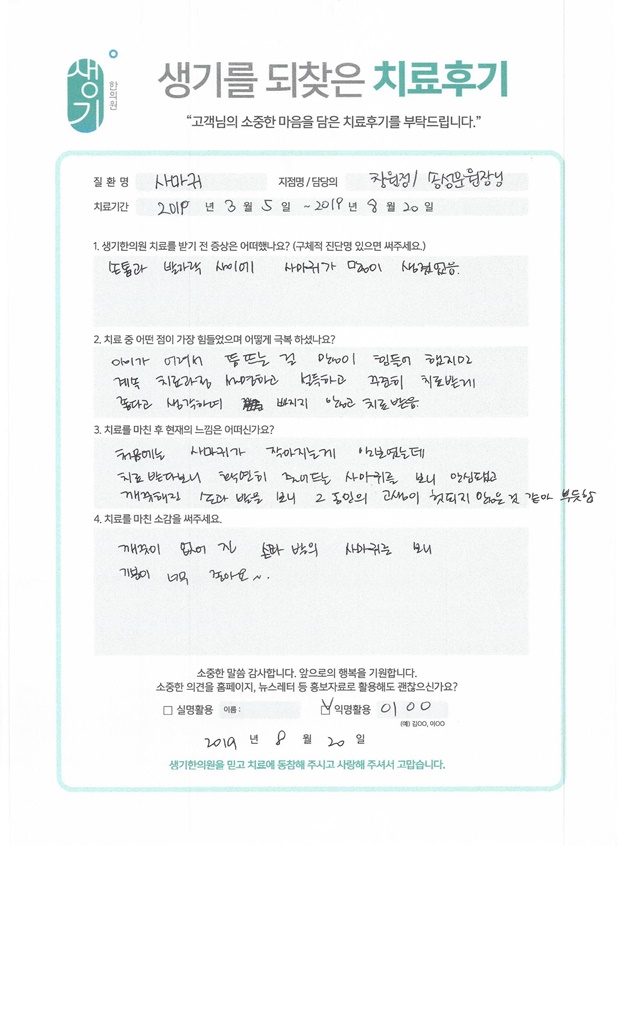 생기
한의원
생기를 되찾은 치료후기
“고객님의 소중한 마음을 담은 치료후기를 부탁드립니다.”
질 환 명 사마귀 지점명 / 담당의 창원점/ 송성문원장님
치료기간 2019 년 3 월 5 일 ~ 2019 년 8 월 20 일
1. 생기한의원 치료를 받기 전 증상은 어떠했나요? (구체적 진단명 있으면 써주세요.)
손톱과 발가락 사이에 사마귀가 많이 생겼었음.
2. 치료 중 어떤 점이 가장 힘들었으며 어떻게 극복 하셨나요?
아이가 어려서 뜸 뜨는 걸 많이 힘들어 했지만
계속 치료과정 설명하고 설득하고 꾸준히 치료받는게
좋다고 생각하며 빠지지 않고 치료받음.
3. 치료를 마친 후 현재의 느낌은 어떠신가요?
처음에는 사마귀가 작아지는게 안보였는데
치료 받다보니 확연히 줄어드는 사마귀를 보니 안심됐고
깨끗해진 손과 발을 보니 그 동안의 고생이 헛되지 않은 것 같아 뿌듯함
4. 치료를 마친 소감을 써주세요.
깨끗이 없어 진 손과 발의 사마귀를 보니
기분이 너무 좋아요~.
소중한 말씀 감사합니다. 앞으로의 행복을 기원합니다.
소중한 의견을 홈페이지, 뉴스레터 등 홍보자료로 활용해도 괜찮으신가요?
□ 실명활용 이름 : ☑ 익명활용 이OO
(예) 김OO, 이OO
2019 년 8 월 20 일
생기한의원을 믿고 치료에 동참해 주시고 사랑해 주셔서 고맙습니다.